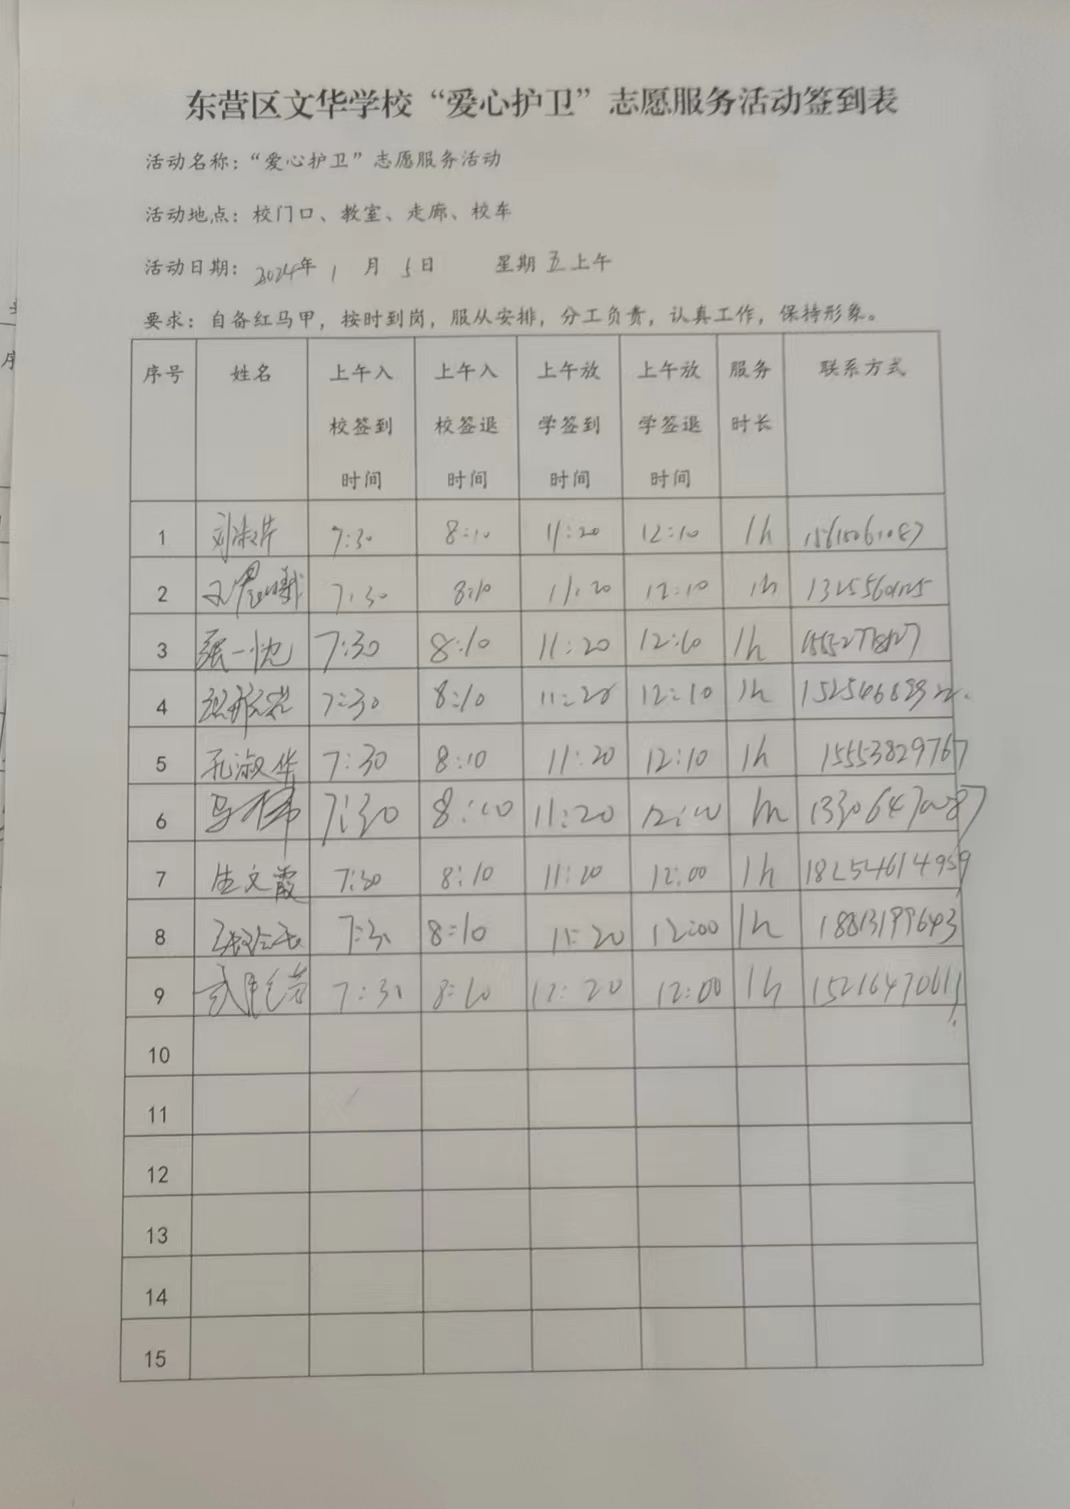 东营区文华学校“爱心护卫”志愿服务活动签到表
活动名称：“爱心护卫”志愿服务活动
活动地点：校门口、教室、走廊、校车
活动日期：2024年 1 月 5日 星期 五 上午
要求：自备红马甲，按时到岗，服从安排，分工负责，认真工作，保持形象。
序号 姓名 上午入 上午入 上午放 上午放 服务 联系方式
校签到 校签退 学签到 学签退 时长
时间 时间 时间 时间
1 刘淑芹 7:30 8:10 11:20 12:10 1h
2 7:30 8:10 11:20 12:10 1h
3 张一忱 7:30 8:10 11:20 12:10 1h
4 7:30 8:10 11:20 12:10 1h
5 孔淑华 7:30 8:10 11:20 12:10 1h 15553829767
6 7:30 8:10 11:20 1h
7 生文霞 7:30 8:10 11:20 12:00 1h 18254614959
8 7:30 8:10 11:20 12:00 1h 18813199643
9 7:30 8:10 12:00 1h 15216470611
10
11
12
13
14
15